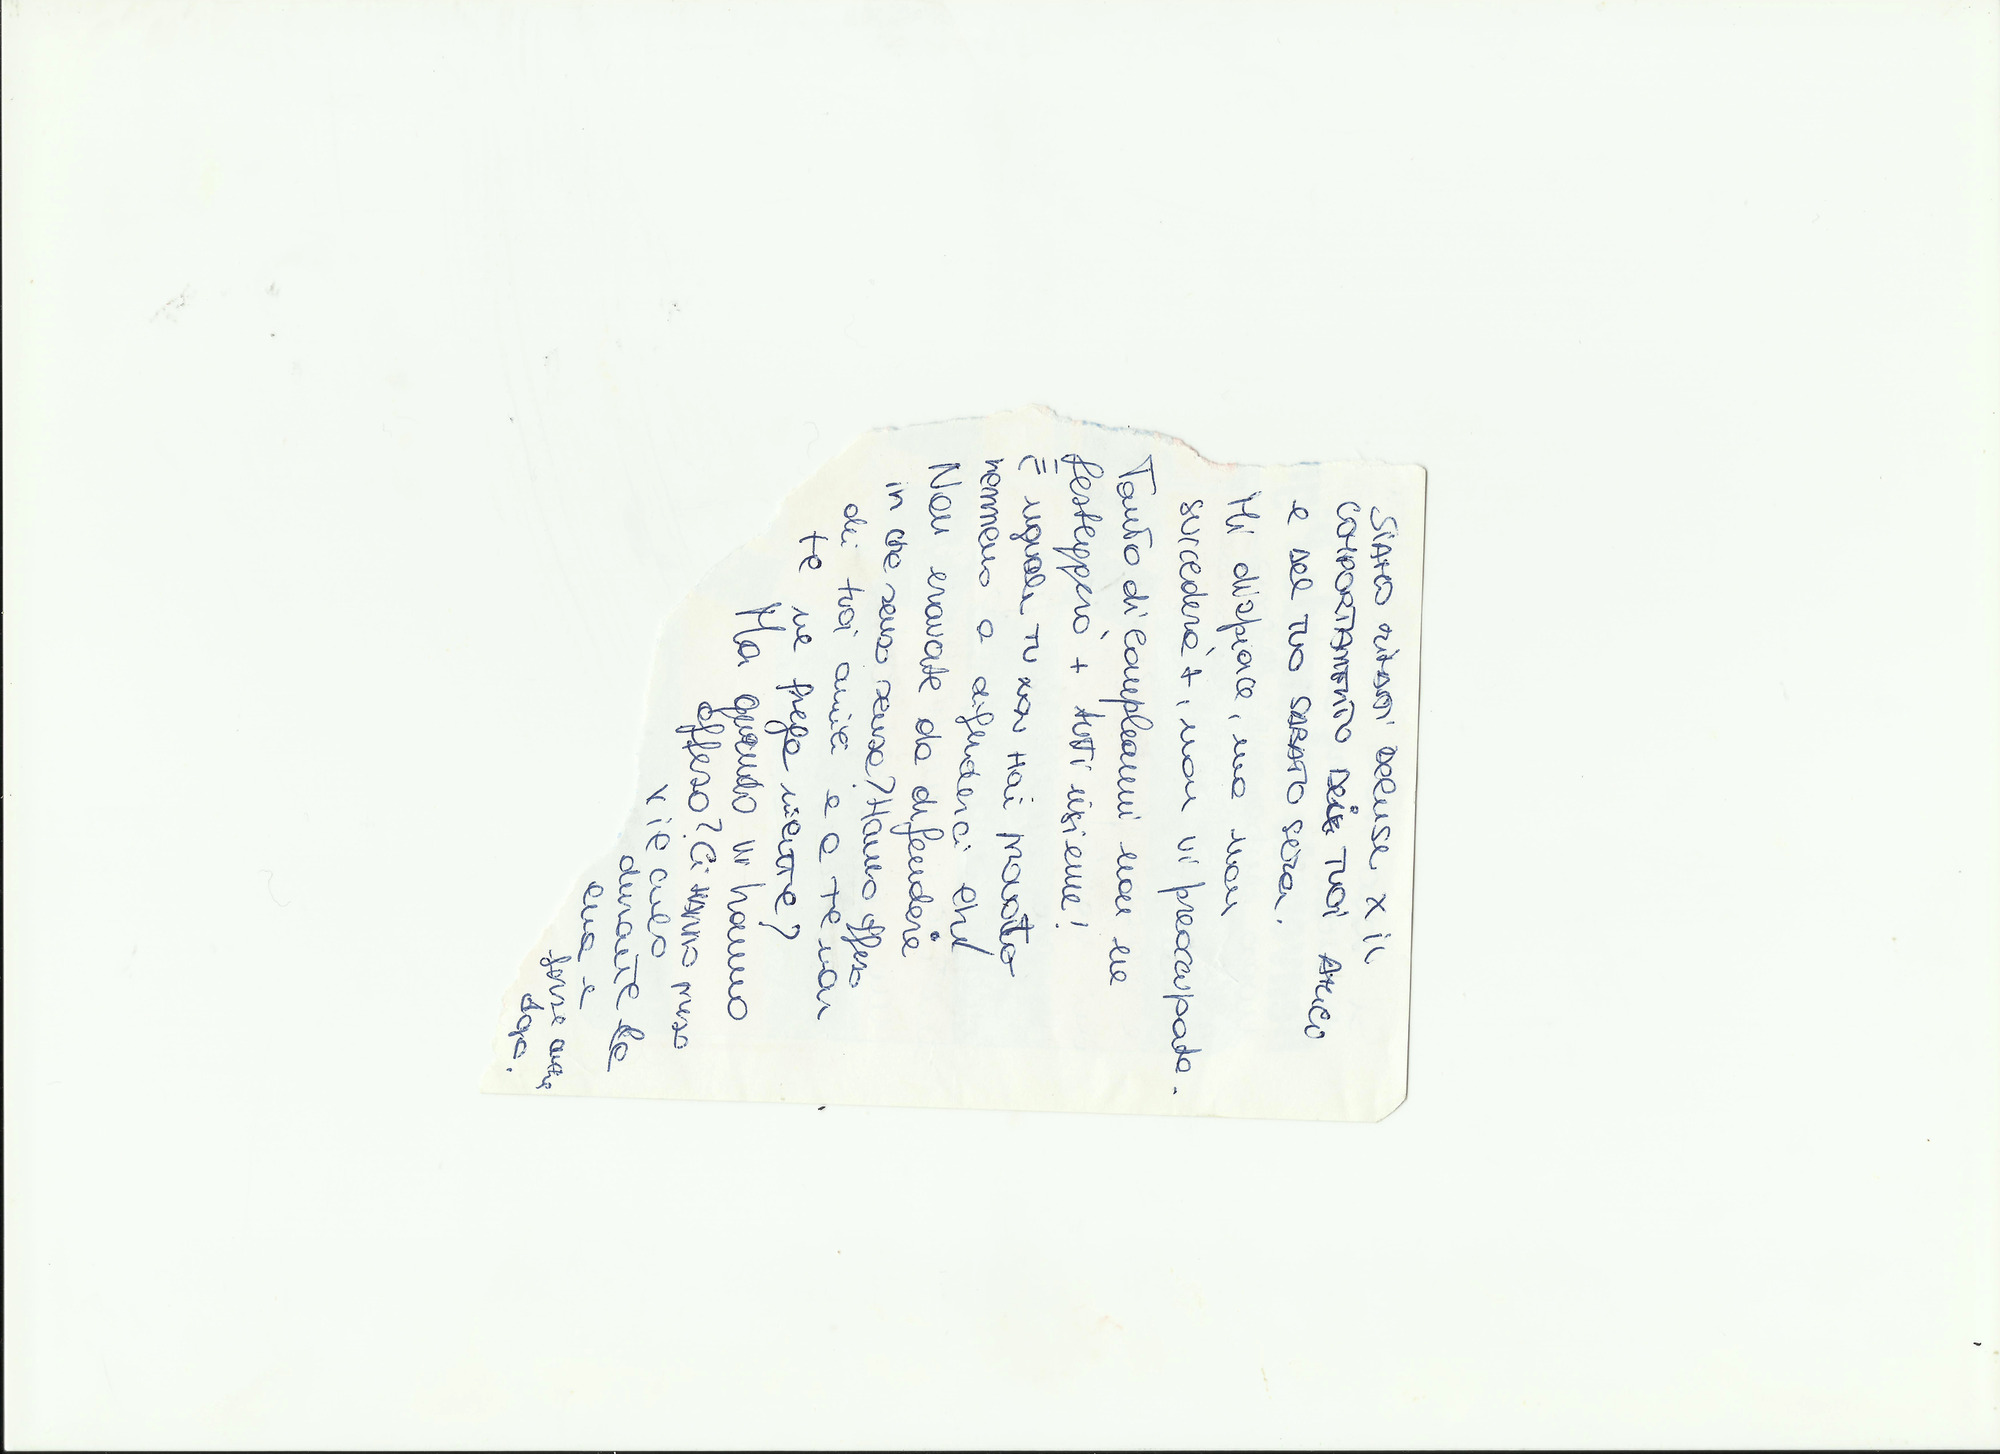 SIAMO rimaste DELUSE X IL
COMPORTAMENTO DEI TUOI AMICI
E DEL TUO SABATO SERA.
Mi dispiace, ma non
succederà +, non vi preoccupate.
Tanto di compleanni non ne
festeggerò + tutti insieme!
È uguale, TU NON HAI PROVATO
nemmeno a difenderci eh!
Non eravate da difendere
in che senso scusa? Hanno offeso
dei tuoi amici e a te non
te ne frega niente?
Ma quando vi hanno
offeso? Ci HANNO preso
x il culo
durante la
cena e
forse anche
dopo.